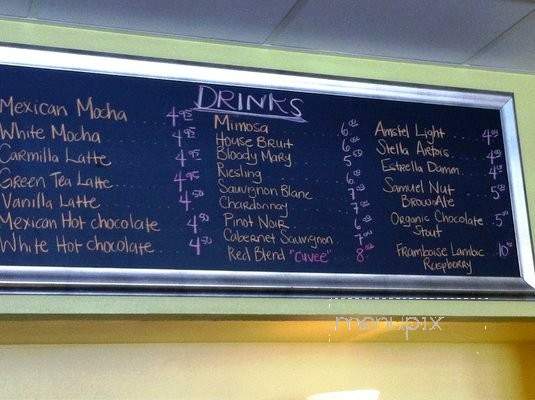 DRINKS
Mexican Mocha 4.95
White Mocha 4.95
Carmilla Latte 4.95
Green Tea Latte 4.95
Vanilla Latte 4.50
Mexican Hot chocolate 4.50
White Hot chocolate 4.50
Mimosa 6.00
House Bruit 6.00
Bloody Mary 5.00
Riesling 6.00
Sauvignon Blanc 7.00
Chardonnay 7.00
Pinot Noir 6.00
Cabernet Sauvignon 7.00
Red Blend "CUVEE" 8.00
Amstel Light
Stella Artois
Estrella Damm
Samuel Nut
Brown Ale
Organic Chocolate
Stout
Framboise Lambic
Raspberry
menupix